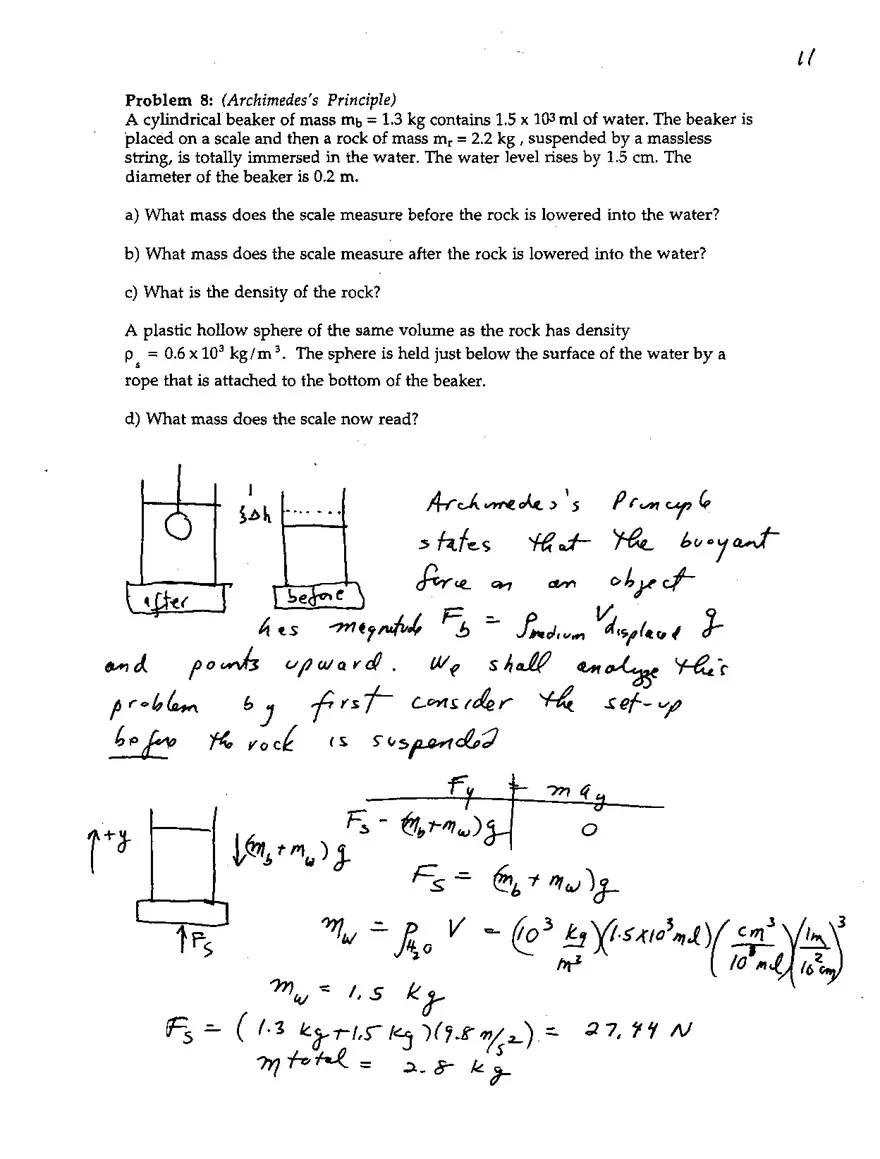 11
Problem 8: (Archimedes's Principle)
A cylindrical beaker of mass m_b = 1.3 kg contains 1.5 x 10³ ml of water. The beaker is
placed on a scale and then a rock of mass m_r = 2.2 kg , suspended by a massless
string, is totally immersed in the water. The water level rises by 1.5 cm. The
diameter of the beaker is 0.2 m.
a) What mass does the scale measure before the rock is lowered into the water?
b) What mass does the scale measure after the rock is lowered into the water?
c) What is the density of the rock?
A plastic hollow sphere of the same volume as the rock has density
ρ_s = 0.6 x 10³ kg/m³. The sphere is held just below the surface of the water by a
rope that is attached to the bottom of the beaker.
d) What mass does the scale now read?
Δh
after
before
Archimedes's Principle
states that the buoyant
force on an object
has magnitude F_b = ρ_medium V_displaced g
and points upward. We shall analyze this
problem by first consider the set-up
before the rock is suspended
F_y = m a_y
F_s - (m_b + m_w) g | 0
+y
(m_b + m_w) g
F_s = (m_b + m_w) g
F_s
m_w = ρ_H₂O V = (10³ kg/m³)(1.5x10³ ml)(cm³/10⁰ ml)(1m/10² cm)³
m_w = 1.5 kg
F_s = (1.3 kg + 1.5 kg)(9.8 m/s²) = 27.44 N
m total = 2.8 kg